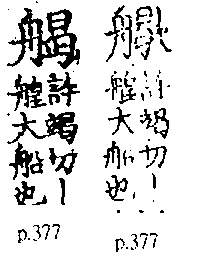 許竭切丨
艎大船也
p.377
許竭切丨
艎大船也
p.377